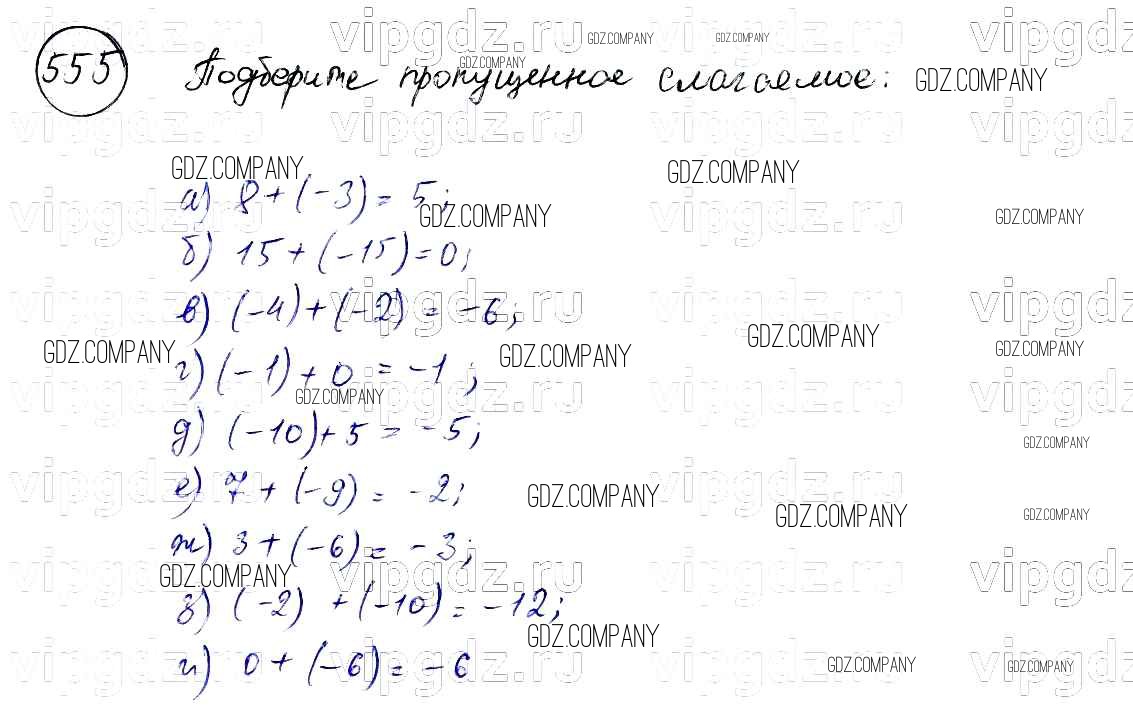 555 Подберите пропущенное слагаемое:
а) 8 + (-3) = 5;
б) 15 + (-15) = 0;
в) (-4) + (-2) = -6;
г) (-1) + 0 = -1;
д) (-10) + 5 = -5;
е) 7 + (-9) = -2;
ж) 3 + (-6) = -3;
з) (-2) + (-10) = -12;
и) 0 + (-6) = -6
vipgdz.ru
GDZ.COMPANY